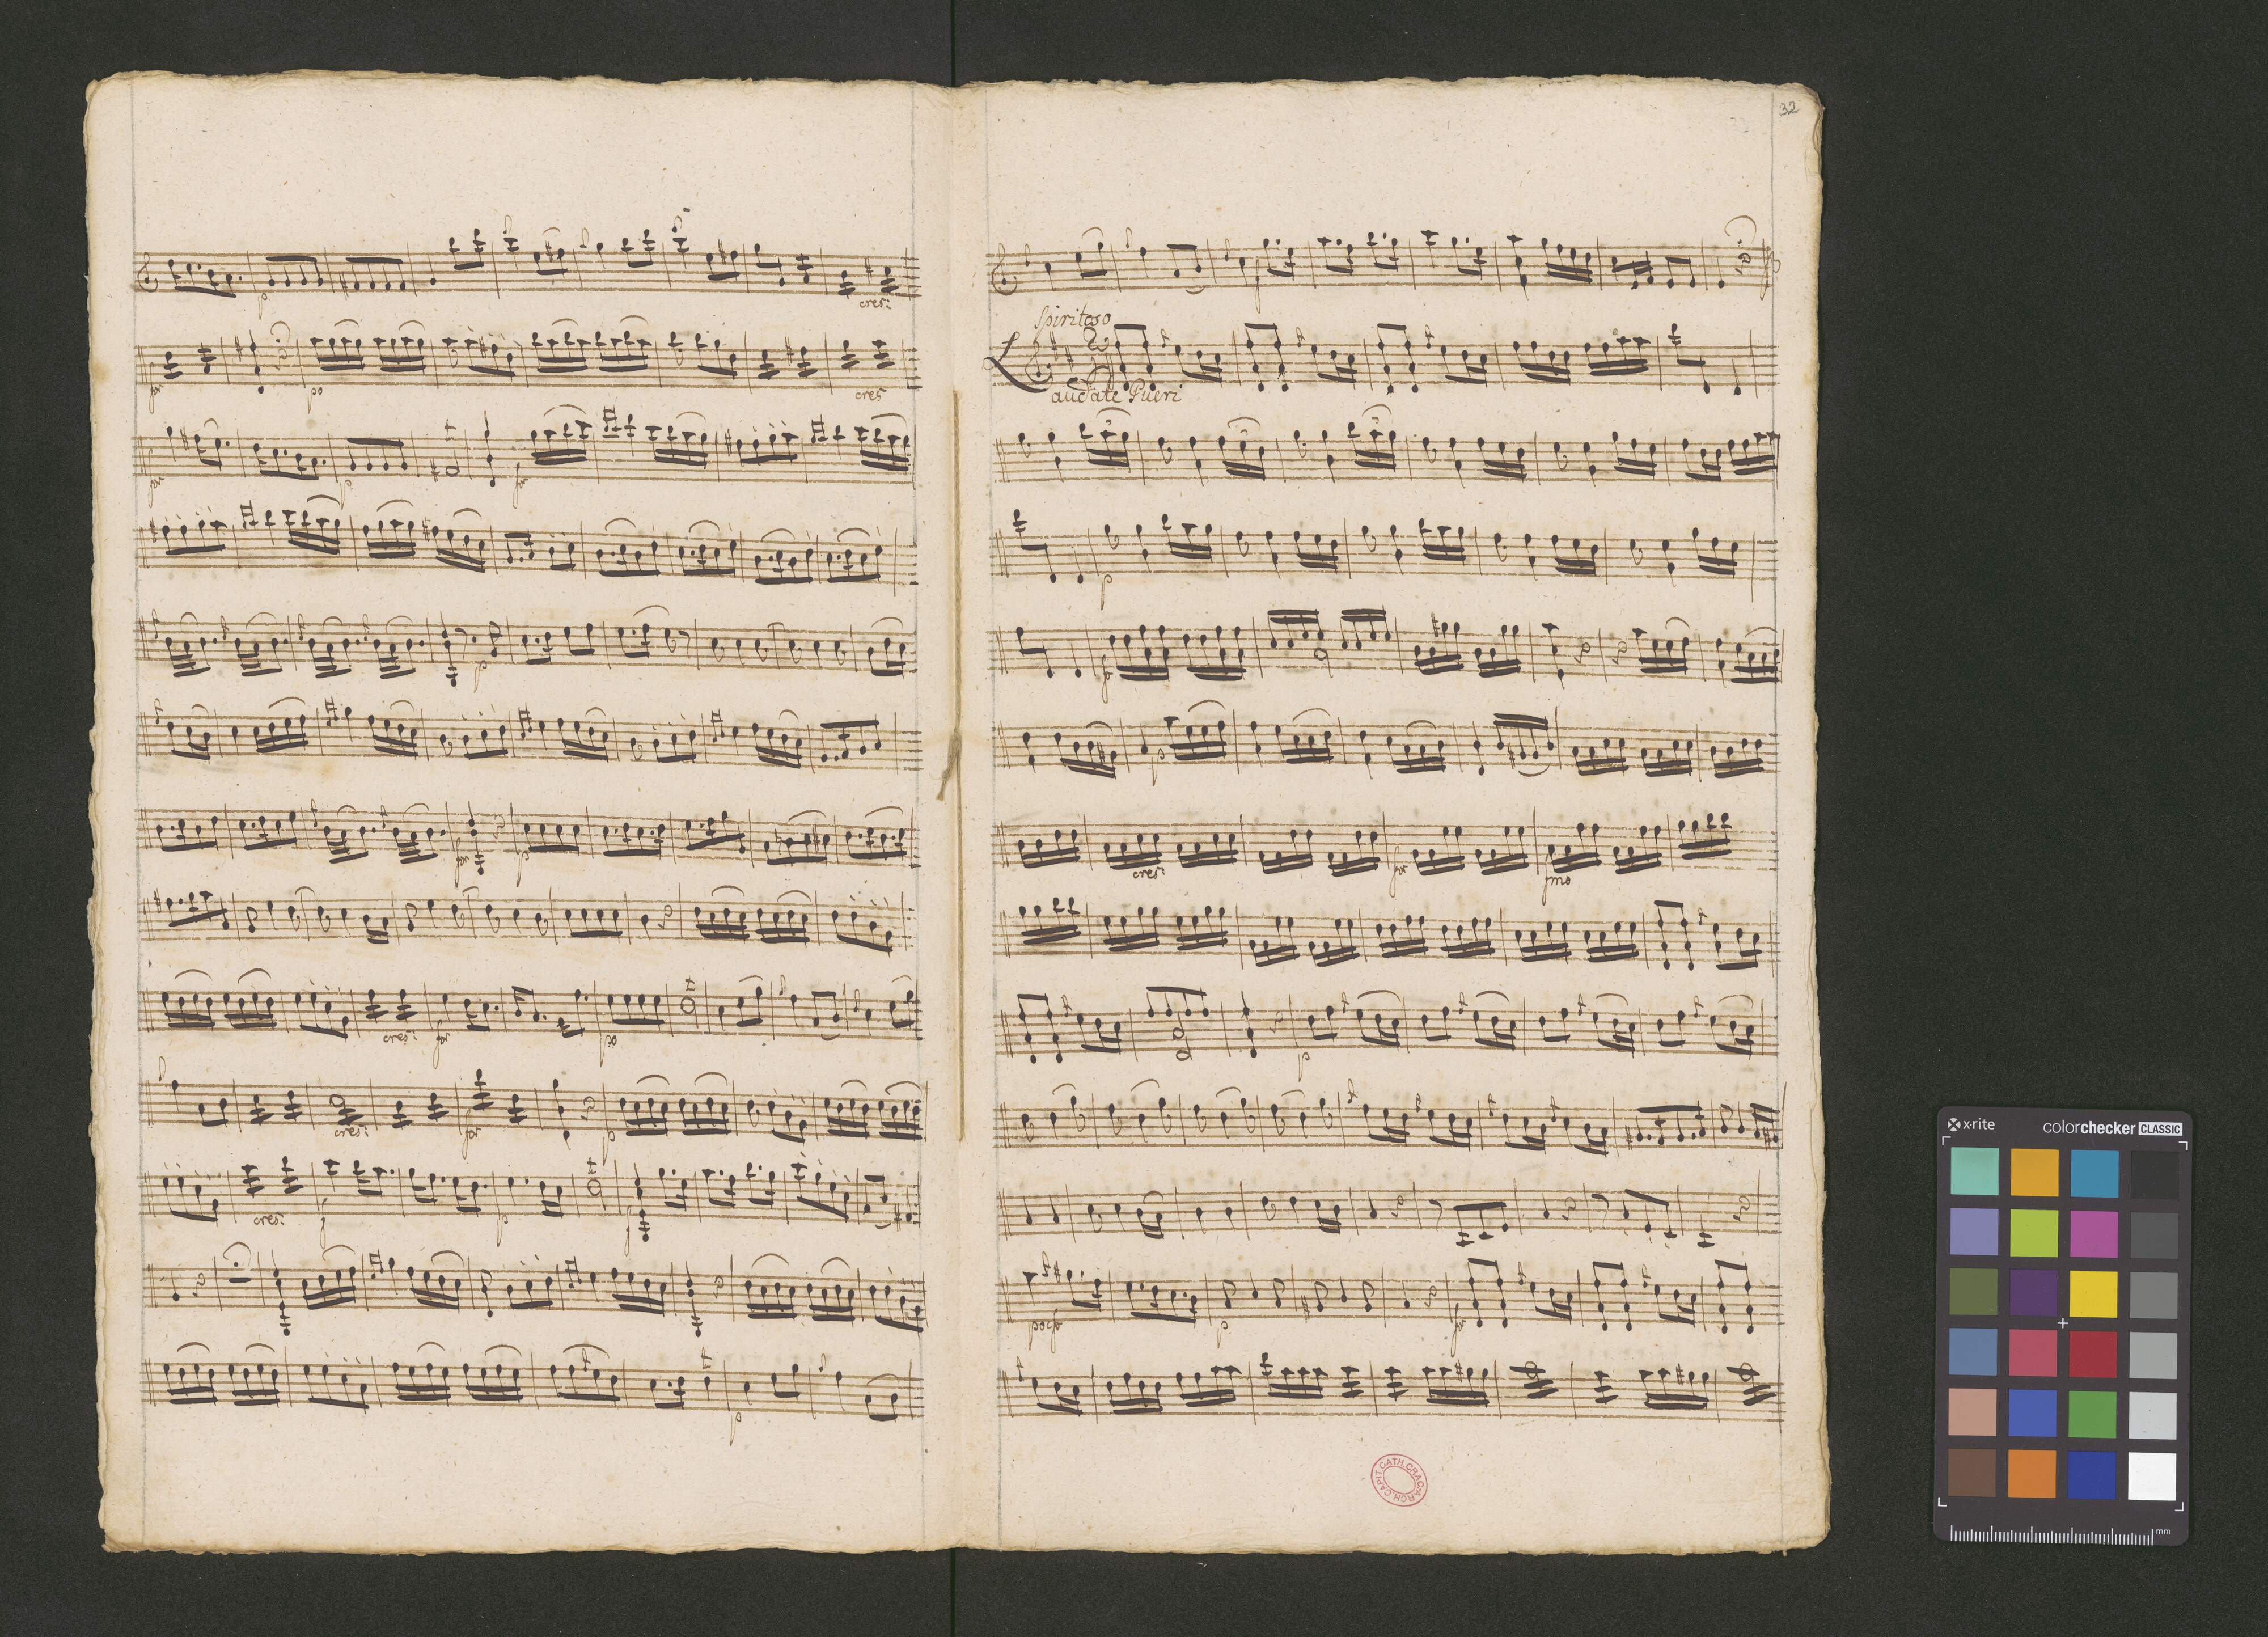 p
cres:
for
po
cres
for
p
for
p
for
p
cres:
for
po
cres:
cres:
for
p
cres:
f
p
f
p
32
f
Spiritoso
Laudate Pueri
p
for
p
cres:
for
fmo
p
poc for
p
for
ARCH. CAPIT. CATH. CRAC.
x-rite
colorchecker CLASSIC
mm